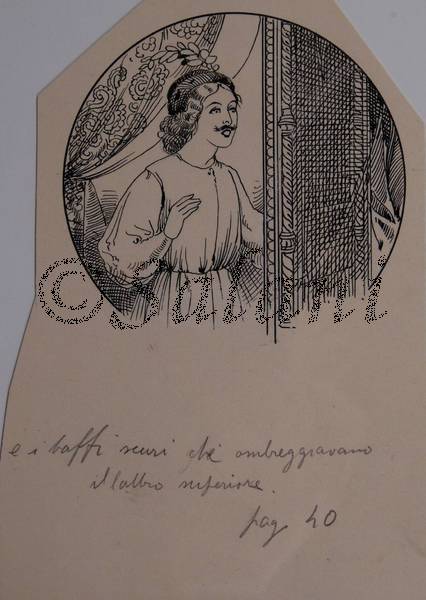 ©Salani
e i baffi scuri che ombreggiavano
il labbro superiore.
pag. 40